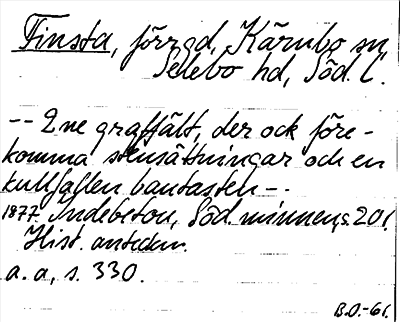 Finsta, förr gd, Kärnbo sn
Selebo hd, Söd. l.
-- 2ne graffält, der ock före-
komma stensättningar och en
kullfallen bautasten --.
1877. Indebetou, Söd. minnen, s. 201.
Hist. antedn.
a. a, s. 330.
B.O.-61.